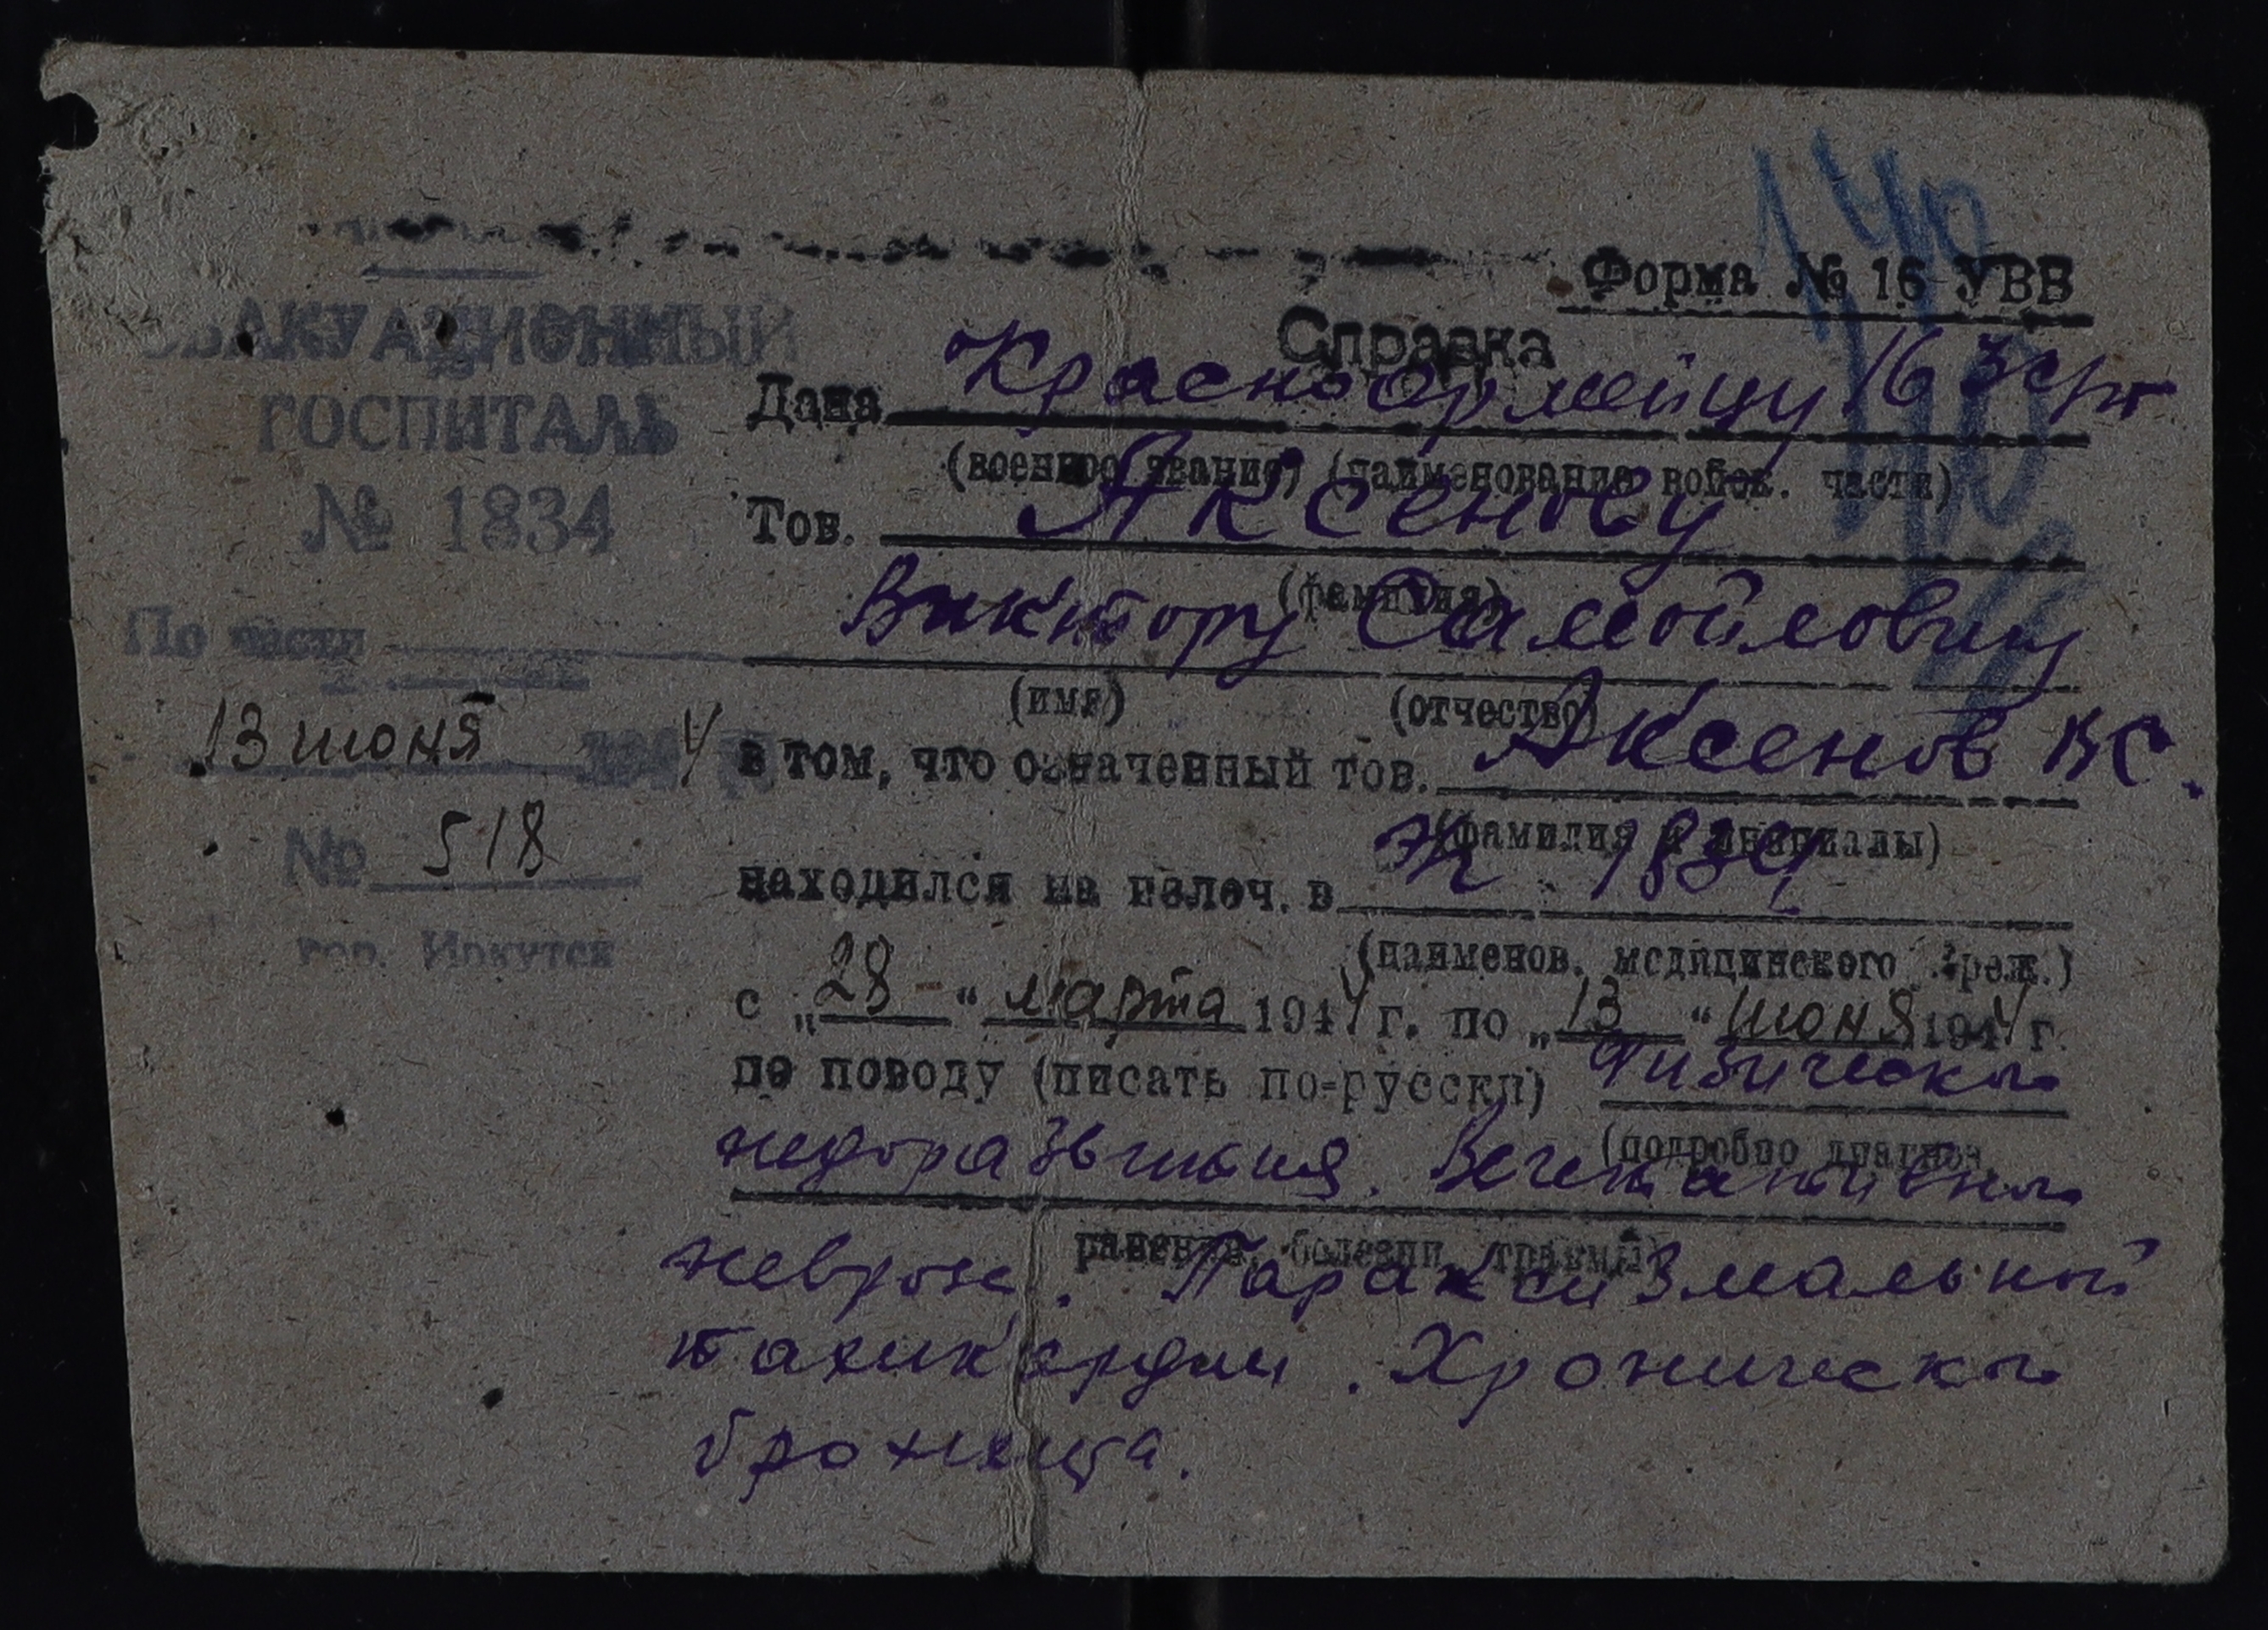 Форма № 16 УВВ
Справка
ЭВАКУАЦИОННЫЙ
ГОСПИТАЛЬ
№ 1834
По части
13 июня 194 4
№ 518
гор. Иркутск
Дана Красноармейцу 16 зсп
(военное звание) (наименование войск. части)
Тов. Аксенову
(фамилия)
Виктору Самойловичу
(имя) (отчество)
в том, что означенный тов. Аксенов ВС.
(фамилия и инициалы)
находился на излеч. в ЭГ 1834
(наименов. медицинского учреж.)
с „28“ марта 1944 г. по „13“ июня 1944 г.
по поводу (писать по-русски) Физического
(подробно диагноз,
недоразвития. Вегетативного
ранения, болезни, травмы)
невроза. Параксизмальной
тахикардии. Хронического
бронхита.